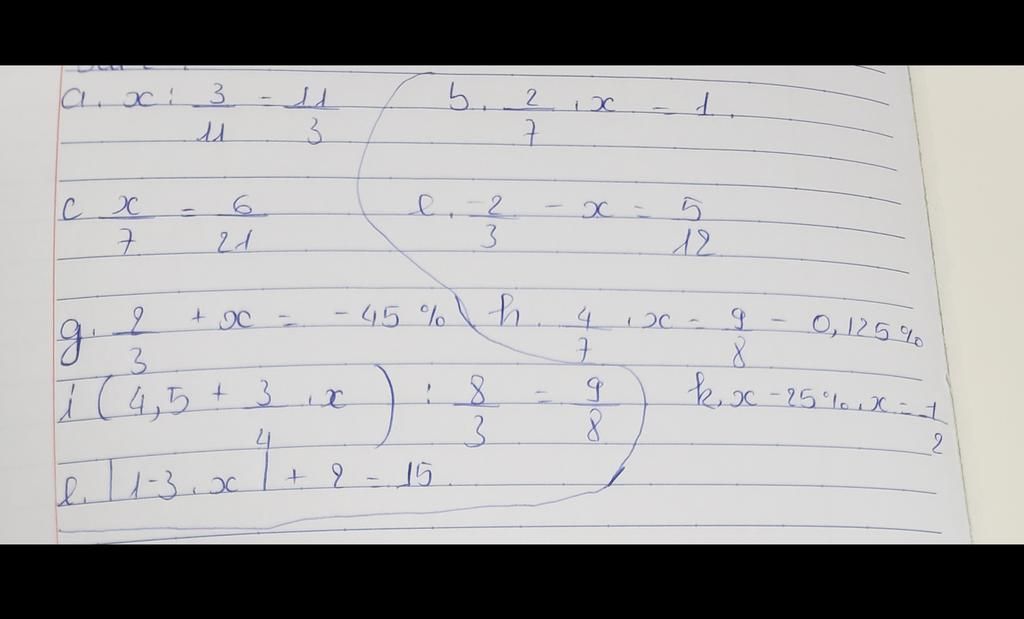 a. x : 3/11 = 11/3 b. 2/7 . x = 1.
c x/7 = 6/21 e. -2/3 - x = 5/12
g. 2/3 + x = -45% h. 4/7 . x = 9/8 - 0,125%
i (4,5 + 3/4 . x) : 8/3 = 9/8 k. x - 25% . x = 1/2
l. |1-3 . x| + 2 = 15